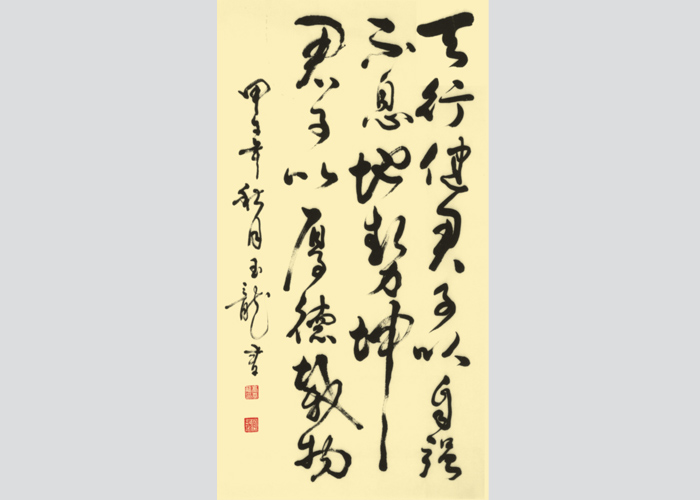 天行健君子以自强
不息地勢坤
君子以厚德載物
甲午年秋月玉龍書